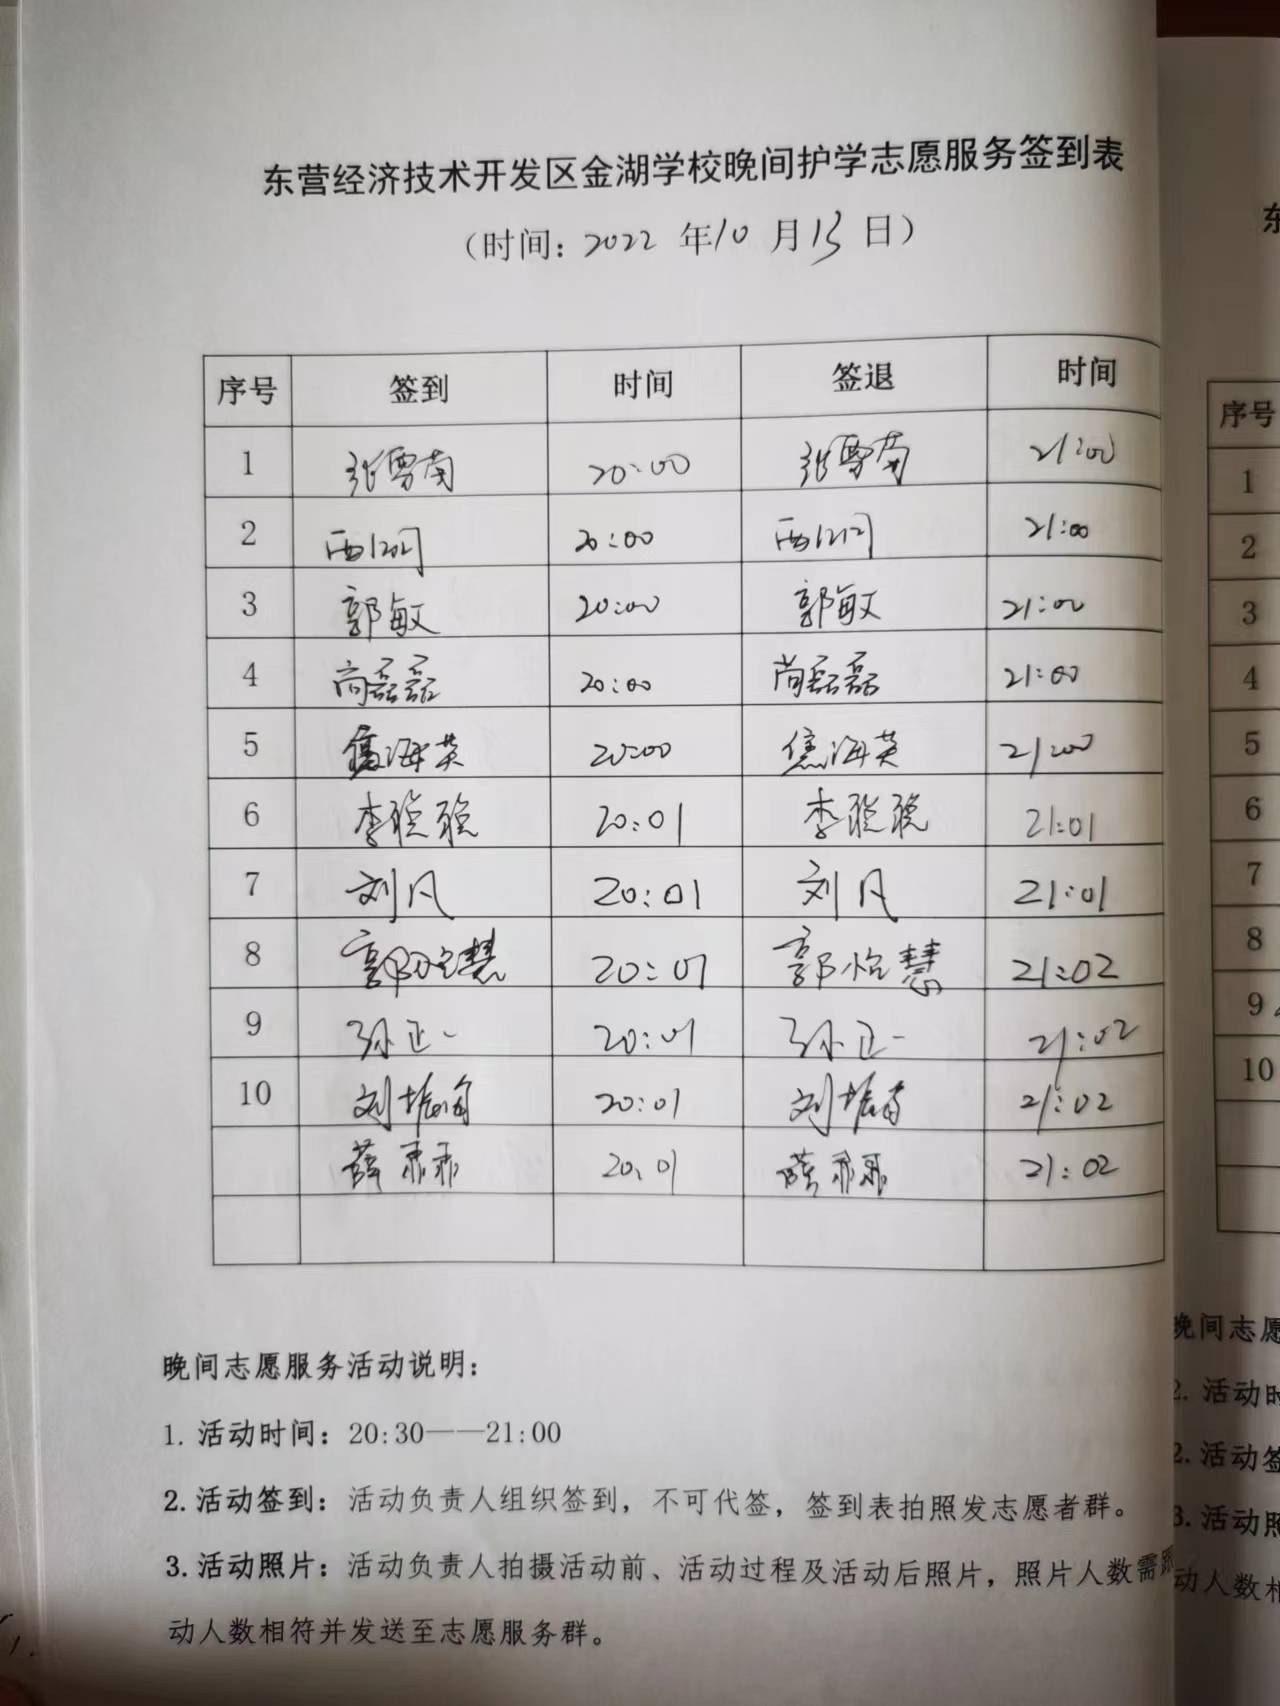 东营经济技术开发区金湖学校晚间护学志愿服务签到表
（时间：2022 年10 月13 日）
序号 签到 时间 签退 时间
1 张雪南 20:00 张雪南 21:00
2 20:00 21:00
3 郭敏 20:00 郭敏 21:00
4 尚磊磊 20:00 尚磊磊 21:00
5 焦海英 20:00 焦海英 21:00
6 李聪聪 20:01 李聪聪 21:01
7 刘凡 20:01 刘凡 21:01
8 郭怡慧 20:01 郭怡慧 21:02
9 孙正一 20:01 孙正一 21:02
10 刘 20:01 刘 21:02
薛乖乖 20:01 薛乖乖 21:02
晚间志愿服务活动说明：
1. 活动时间：20:30——21:00
2. 活动签到：活动负责人组织签到，不可代签，签到表拍照发志愿者群。
3. 活动照片：活动负责人拍摄活动前、活动过程及活动后照片，照片人数需
动人数相符并发送至志愿服务群。
序号
1
2
3
4
5
6
7
8
9
10
晚间志愿
2. 活动时
2. 活动签
3. 活动照
动人数相